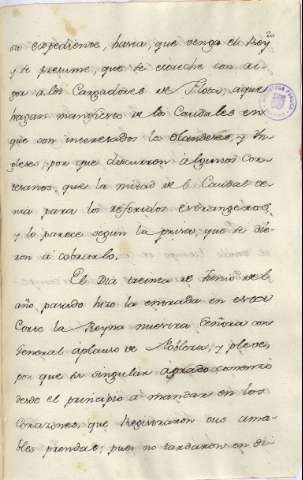 su expediente, hasta, que venga el Rey
y se presume, que se estreche con ri-
gor a los Cargadores de Flota, a que
hagan manifiesto de los Caudales en
que son interesados los Olandeses, y In-
gleses; por que discurren algunos Cor-
tesanos, que la mitad de el Caudal ve-
nia para los referidos extrangeros
y lo parece segun la prisa, que se die-
ron a cobrarlo.
El Dia treinta de Junio de el
año pasado hizo la entrada en esta
Corte la Reyna nuestra Señora con
General aplauso de Nobleza, y pleve
por que su singular agrado comenzó
desde el principio a mandar en los
Corazones, que Registraron sus ama-
bles prendas; pues no tardaron en di